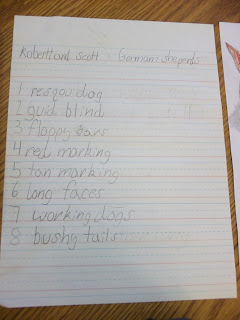 Robert and scott German sheperds
1 resqou dog
2 guid blind
3 floppy ears
4 red marking
5 tan marking
6 long faces
7 working dogs
8 bushy tails